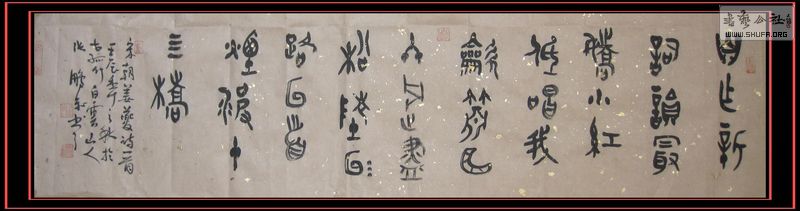 自作新
詞韻最
嬌小紅
低唱我
簫曲
終過盡
松陵
路首
煙波十
四橋
宋朝姜夔詩一首
壬辰之秋於
白雲山人
鵬書
書藝公社
WWW.SHUFA.ORG